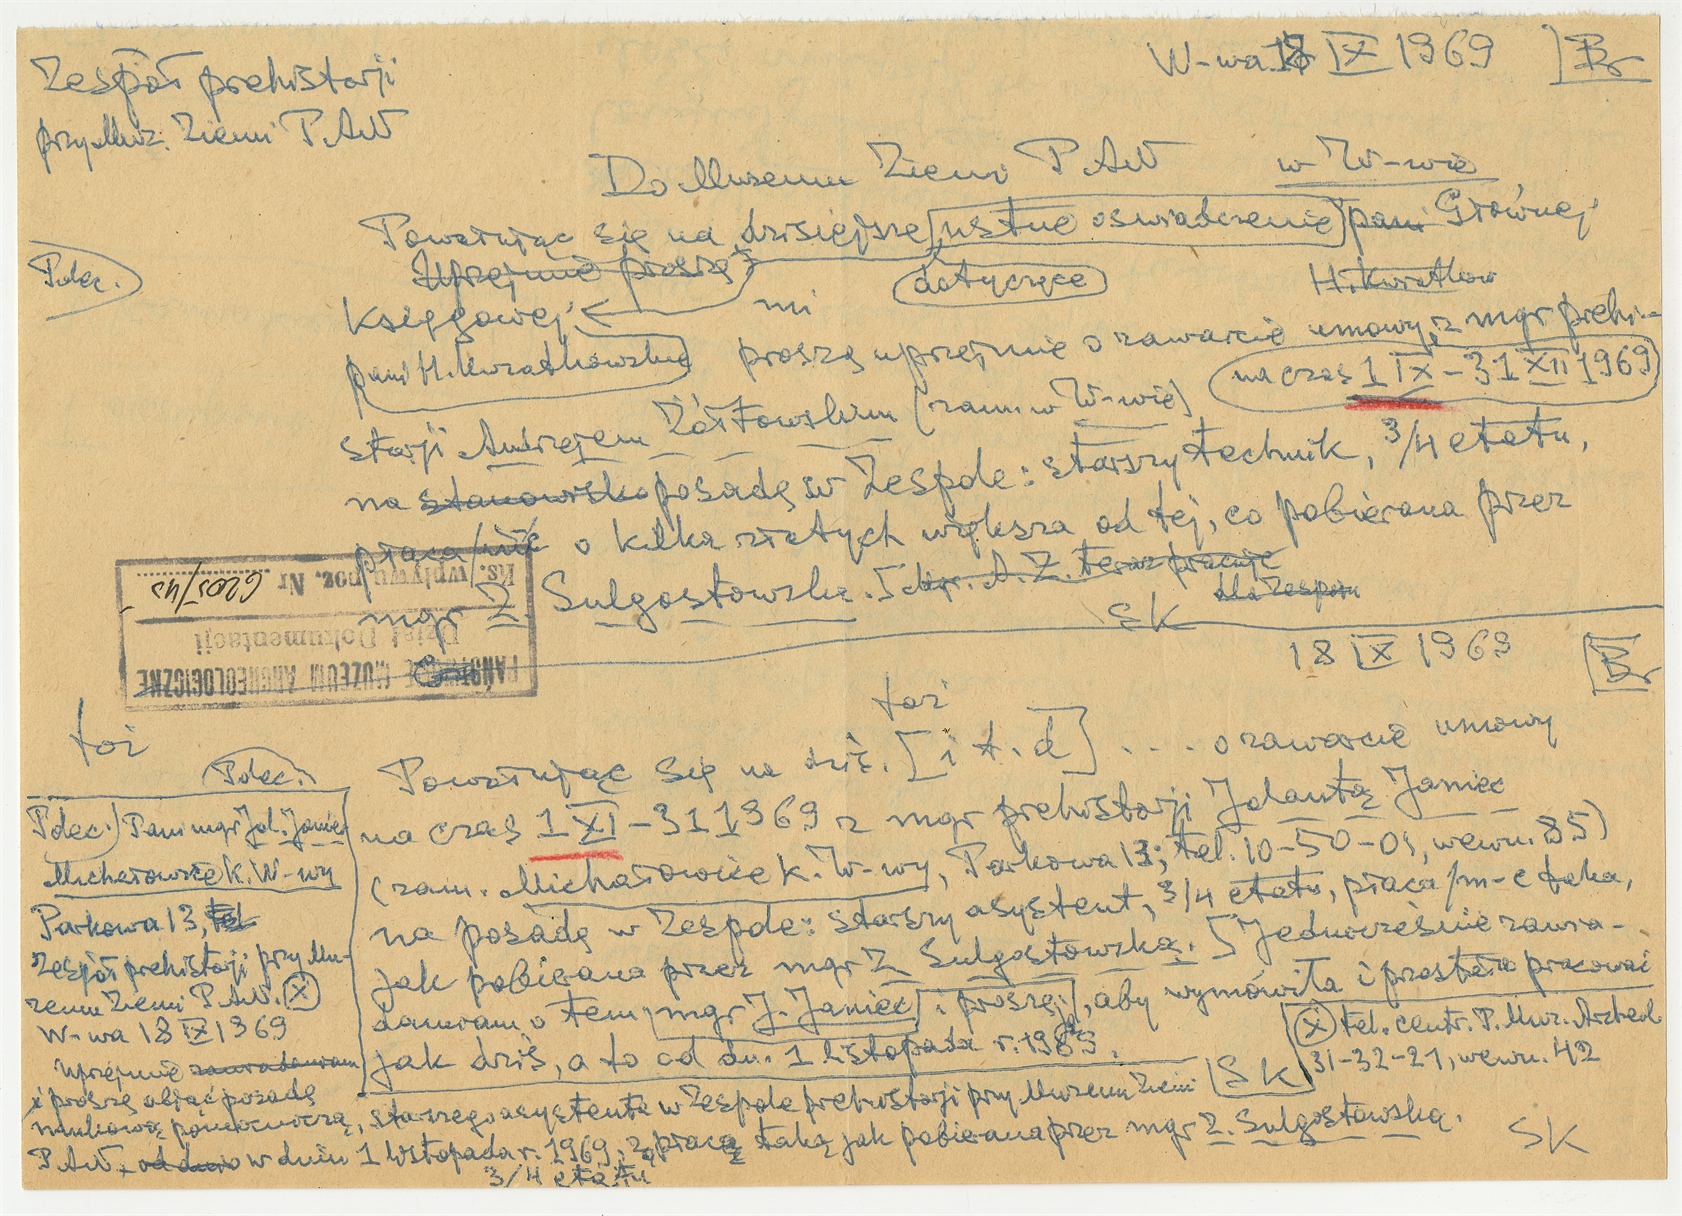 Zespół prehistorji
przy Muz. Ziemi P.A.N
W-wa 18 IX 1969
Br
Do Muzeum Ziemi P.A.N w W-wie
Powołując się na dzisiejsze ustne oświadczenie pani Głównej
Uprzejmie proszę
dotyczące
H. Kwiatkow
Polec.
Księgowej
mi
pani H. Kwiatkowską proszę uprzejmie o zawarcie umowy z mgr prehi-
na czas 1 IX – 31 XII 1969
storji Andrzejem Żółtowskim (zam. w W-wie)
na stanowisko posadę w Zespole: starszy technik, 3/4 etatu,
płaca o kilka złotych większa od tej, co pobierana przez
mgr Z. Sulgostowską. A. Z. teraz pracuje
dla Zespołu
SK
PAŃSTWOWE MUZEUM ARCHEOLOGICZNE
Dział Dokumentacji
Ks. wpływu poz. Nr
18 IX 1969
Br
toż
toż
Powołując się na dziś. [i t. d] .... o zawarcie umowy
na czas 1 XI – 31 1 1969 z mgr prehistorji Jolantą Janiec
(zam. Michałowice k. W-wy, Parkowa 13; tel. 10-50-01, wewn. 85)
na posadę w Zespole: starszy asystent, 3/4 etatu, płaca taka,
jak pobierana przez mgr Z. Sulgostowską. Jednocześnie zawia-
damiam o tem mgr J. Janiec i proszę ją, aby wymówiła i przestała pracować
jak dziś, a to od dn. 1 listopada r. 1969.
SK
(x) tel. centr. P. Muz. Archeol
31-32-21, wewn. 42
Polec.
Polec.) Pani mgr Jol. Janiec
Michałowice k. W-wy
Parkowa 13, tel
Zespół prehistorji przy Mu-
zeum Ziemi P.A.N. (x)
W-wa 18 IX 1969
Uprzejmie zawiadamiam
i proszę objąć posadę
naukową pomocniczą, starszego asystenta w Zespole prehistorji przy Muzeum Ziemi
P.A.N., w dniu 1 listopada r. 1969, z płacą taką jak pobierana przez mgr Z. Sulgostowską.
3/4 etatu
SK